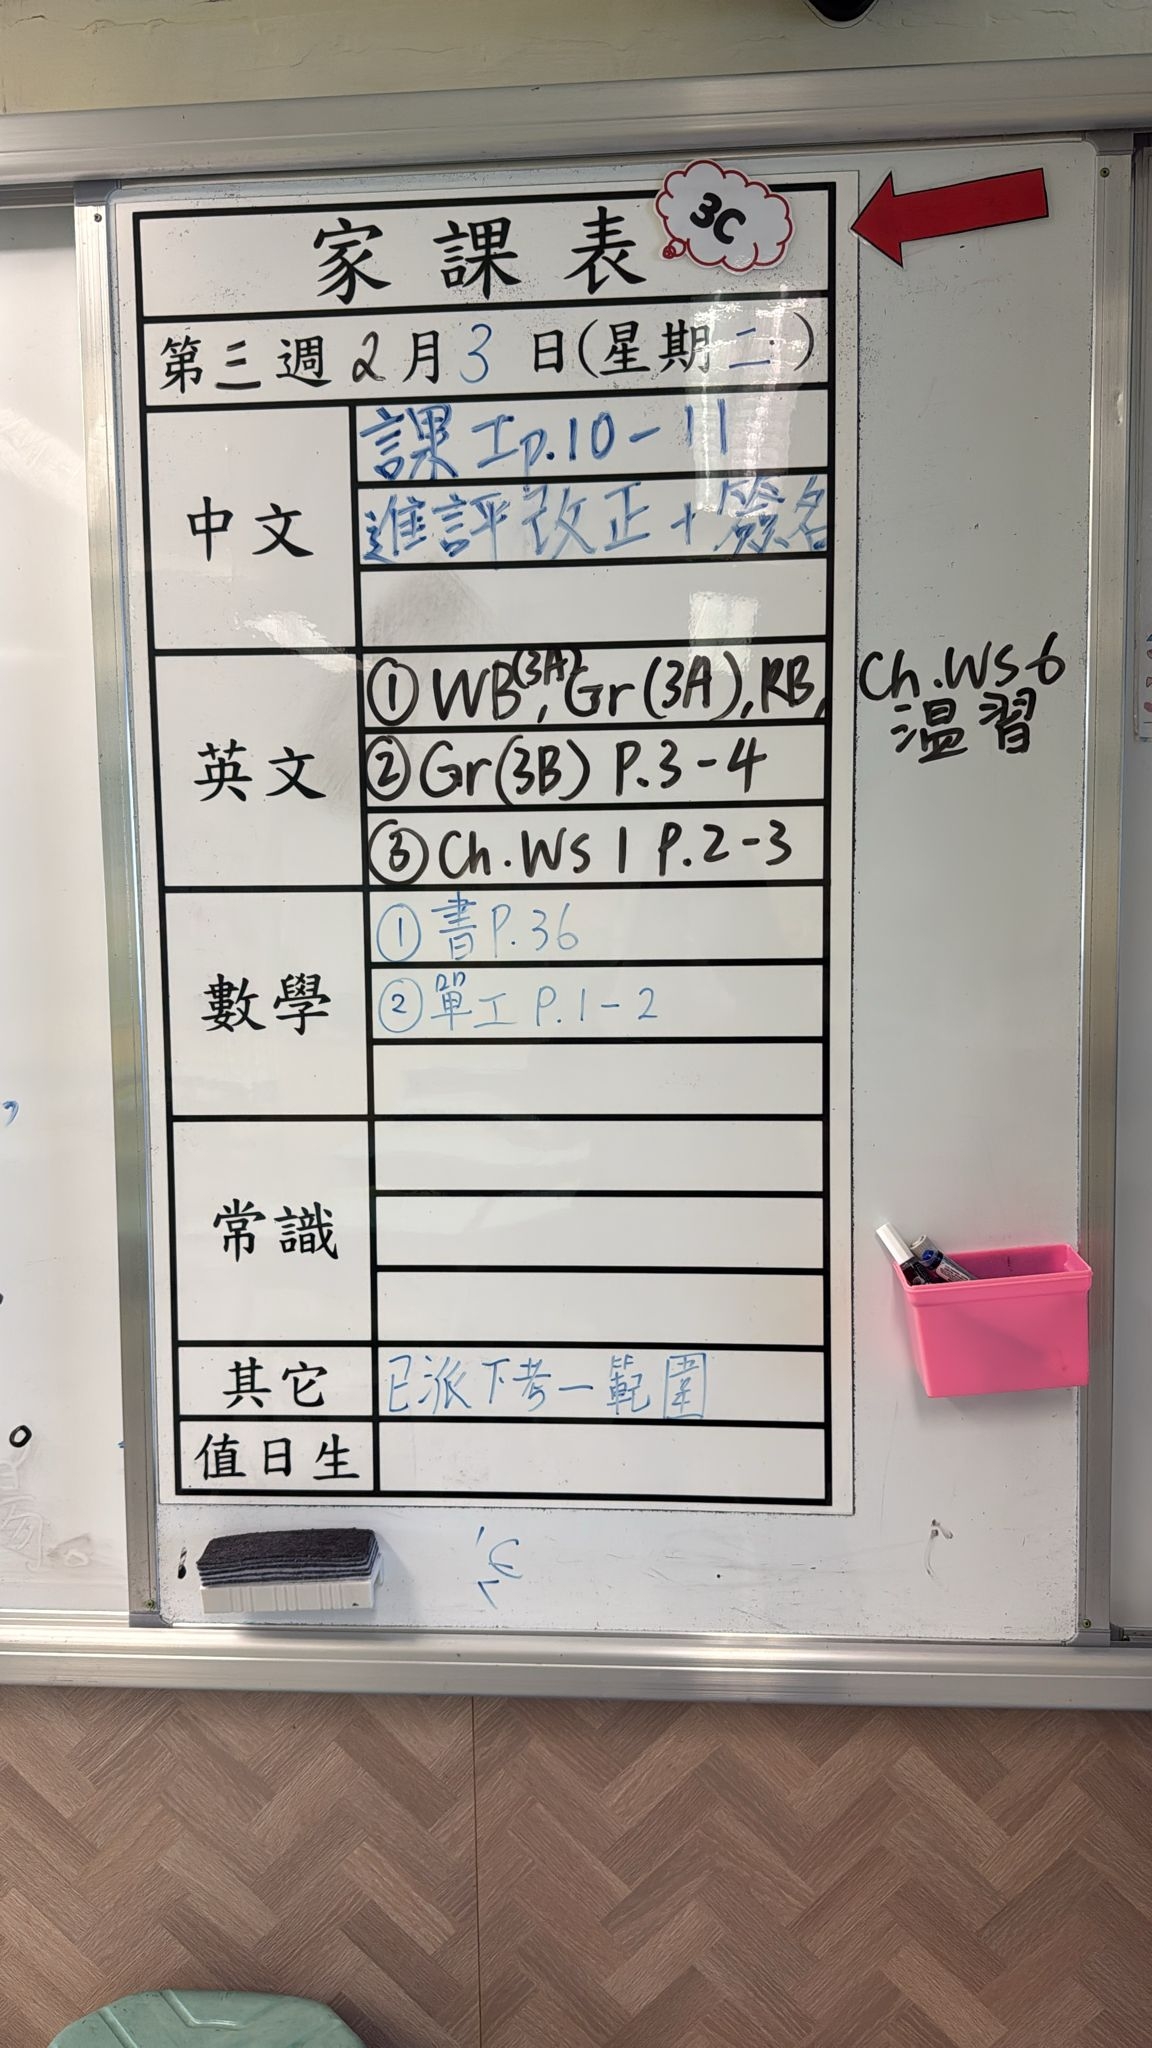 家課表 3C
第三週2月3日(星期二)
中文
課工p.10-11
進評改正+簽名
英文
①WB(3A),Gr(3A),RB, Ch.Ws6
溫習
②Gr(3B) P.3-4
③Ch.Ws 1 P.2-3
數學
①書P.36
②單工 P.1-2
常識
其它
已派下考一範圍
值日生